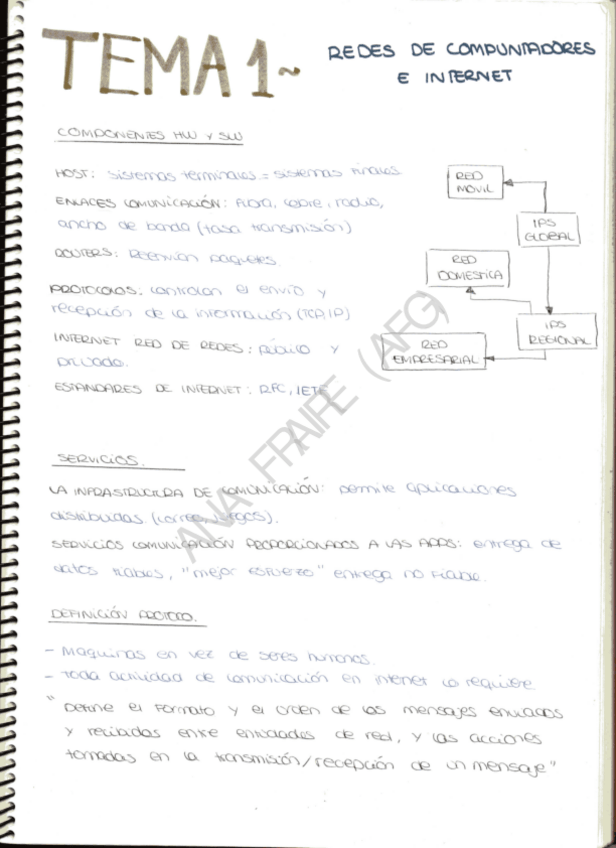 TEMA 1~
REDES DE COMPUNTADORES
E INTERNET
COMPONENTES HW Y SW
HOST: sistemas terminales = sistemas finales.
ENLACES COMUNICACIÓN: Fibra, cobre, radio,
ancho de banda (tasa transmisión)
ROUTERS: Reenvían paquetes.
PROTOCOLOS: controlan el envío y
recepción de la información (TCP, IP)
INTERNET RED DE REDES: público y
privado.
ESTANDARES DE INTERNET: RFC, IETF
RED
MOVIL
IPS
GLOBAL
RED
DOMESTICA
IPS
REGIONAL
RED
EMPRESARIAL
SERVICIOS.
LA INFRASTRUCTURA DE COMUNICACIÓN: permite aplicaciones
distribuidas (correo, juegos).
SERVICIOS COMUNICACIÓN PROPORCIONADOS A LAS APPS: entrega de
datos fiables, "mejor esfuerzo" entrega no fiable.
DEFINICIÓN PROTOCO.
- Maquinas en vez de seres humanos.
- Toda actividad de comunicación en internet lo requiere
" Define el formato y el orden de los mensajes enviados
y recibidos entre entidades de red, y las acciones
tomadas en la transmisión/recepción de un mensaje"
ANA FRAIRE (AFG)